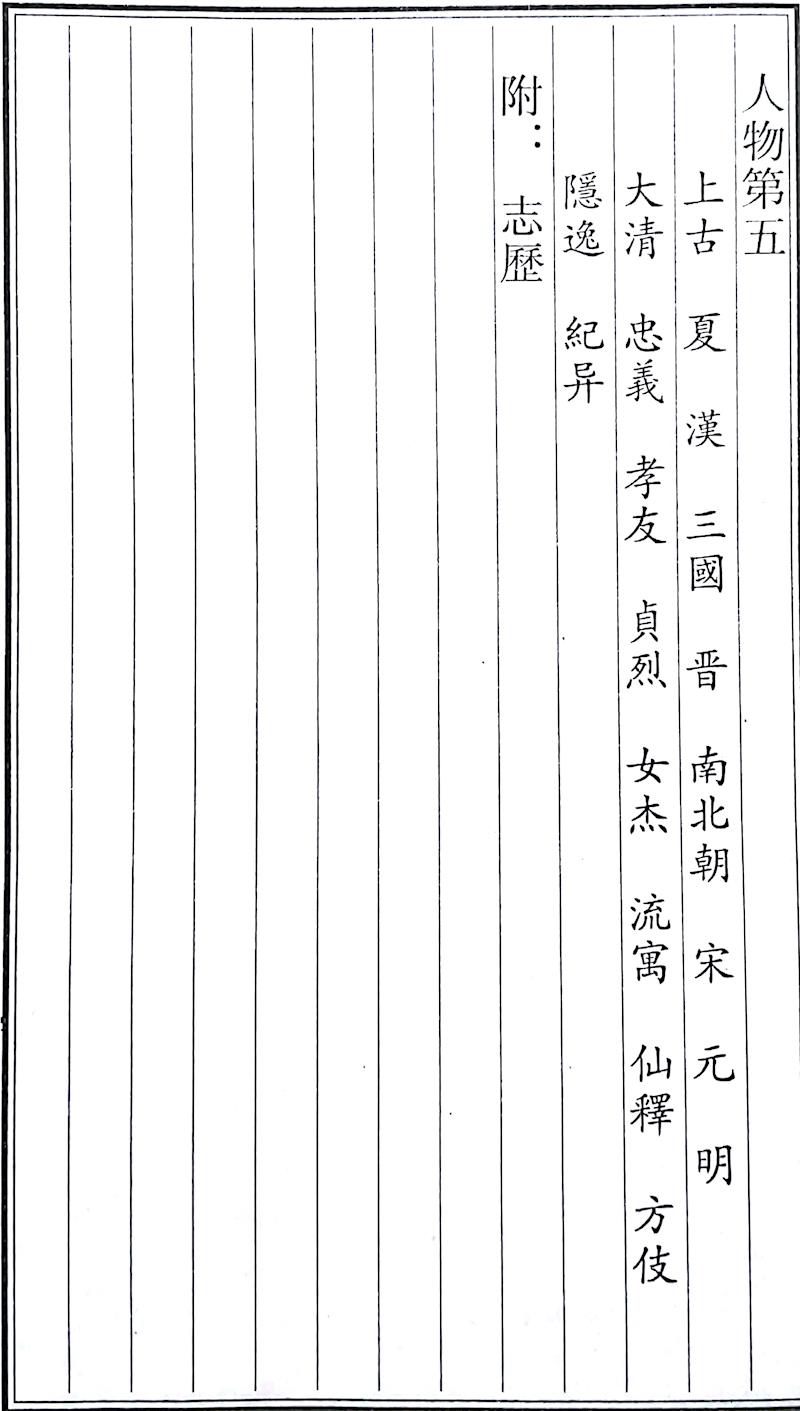 人物第五
上古 夏 漢 三國 晋 南北朝 宋 元 明
大清 忠義 孝友 貞烈 女杰 流寓 仙釋 方伎
隱逸 紀异
附： 志歷